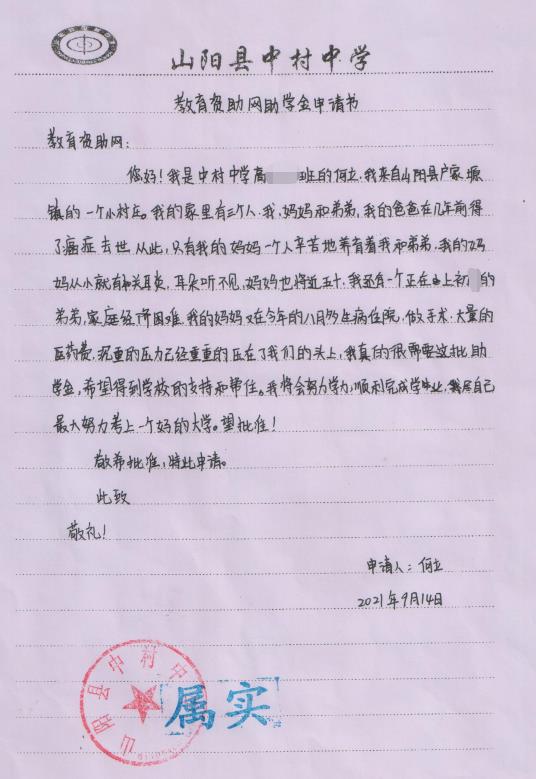 山阳县中村中学
教育资助网助学金申请书
教育资助网:
您好!我是中村中学高 班的何立.我来自山阳县户家塬
镇的一个小村庄。我的家里有三个人.我,妈妈和弟弟,我的爸爸在几年前得
了癌症去世.从此,只有我的妈妈一个人辛苦地养育着我和弟弟,我的妈
妈从小就有 耳炎,耳朵听不见,妈妈也将近五十.我还有一个正在 上初 的
弟弟,家庭经济困难.我的妈妈又在今年的八月份生病住院,做手术.大量的
医药费,沉重的压力已经重重的压在了我们的头上,我真的很需要这批助
学金,希望得到学校的支持和帮住。我将会努力学力,顺利完成学业,我尽自己
最大努力考上一个好的大学。望批准!
敬希批准,特此申请。
此致
敬礼!
申请人:何立
2021年9月14日
山阳县中村中
属实